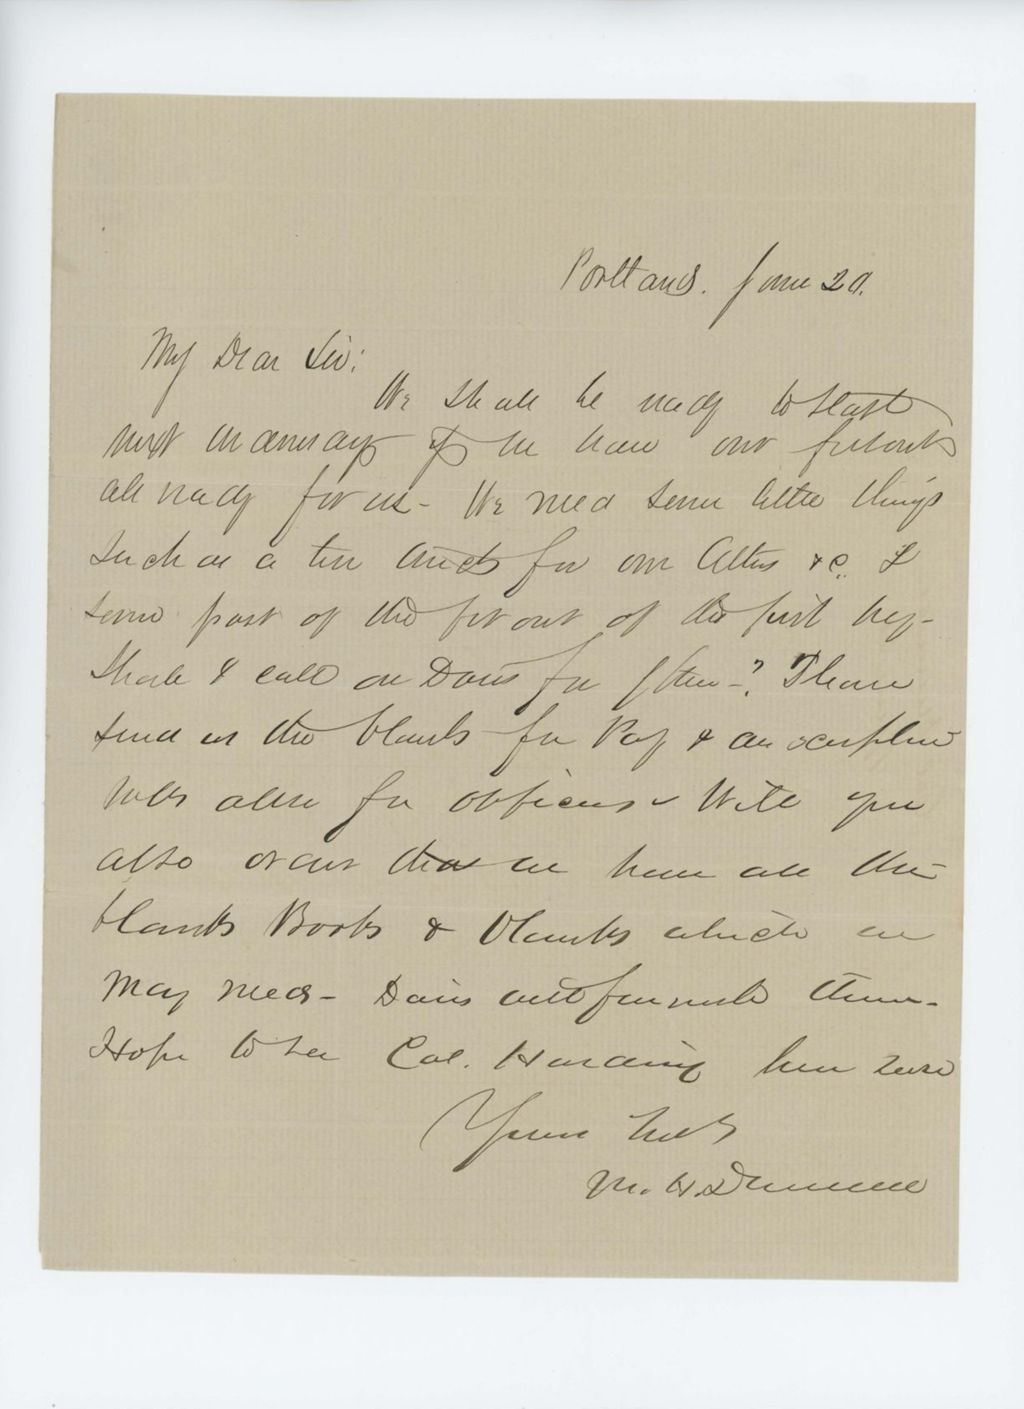 Portland. June 20.
My Dear Sir:
We shall be ready to start
next Wednesday if we have our fitouts
all ready for us - We need some little things
such as a tin for our &c. &
some part of the fit out of the first reg-
Shall I call on Davis for them -? Please
send us the blanks for Pay &
rolls also for officers - Will you
also order that we have all the
blanks Books & blanks which we
may need - Davis will furnish them -
Hope to see Col. Harding here soon
Yours truly
M. H. Dunnell